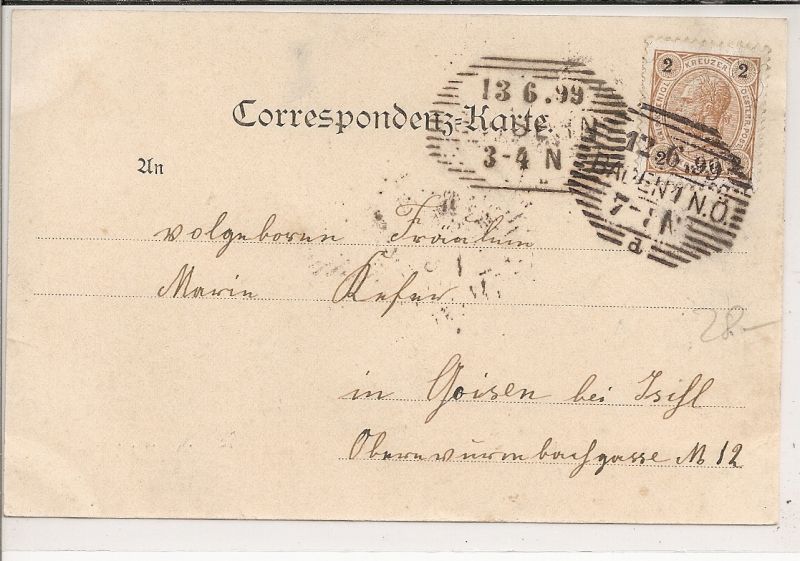 2 KREUZER 2
13 6.99
Correspondenz-Karte.
3-4 N
12.6.99
BADEN 1 N.Ö.
7-8 N
d
An
volgeboren Fräulein
Marie Kefer
28.-
in Goisen bei Ischl
Oberwurmbachgasse № 12